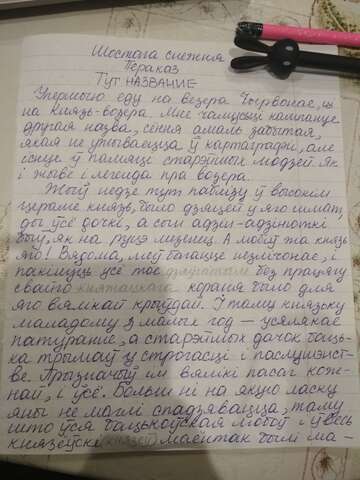 Шостага снежня
Пераказ
Тут НАЗВАНИЕ
Упершыню еду на возера Чырвонае, ці
на Князь-возера. Мне чамусьці кампануе
другая назва, сёння амаль забытая,
якая не ўтываецца ў картаграфіі, але
існуе ў памяці старэйшых людзей. Як
і жыве і легенда пра возера.
Жыў недзе тут паблізу ў высокім
цераме князь, было дзяцей у яго шмат,
ды ўсё дочкі, а сын адзін-адзінюткі
быў, як на руцэ мезенец. А любіў жа князь
яго! Вядома, меў багацце незлічонае, і
пакінуць усё тое без працягу
свайго княжацкага кораня было для
яго вялікай крыўдай. І таму князьку
маладому з малых год — усялякае
патуранне, а старэйшых дачок баць-
ка трымаў у строгасці і паслушэнст-
ве. Прызначыў ім вялікі пасаг кож-
най, і ўсё. Больш ні на якую ласку
яны не маглі спадзявацца, таму
што ўся бацькоўская любоў і ўвесь
князеўскі (князеў) маёнтак былі ма-